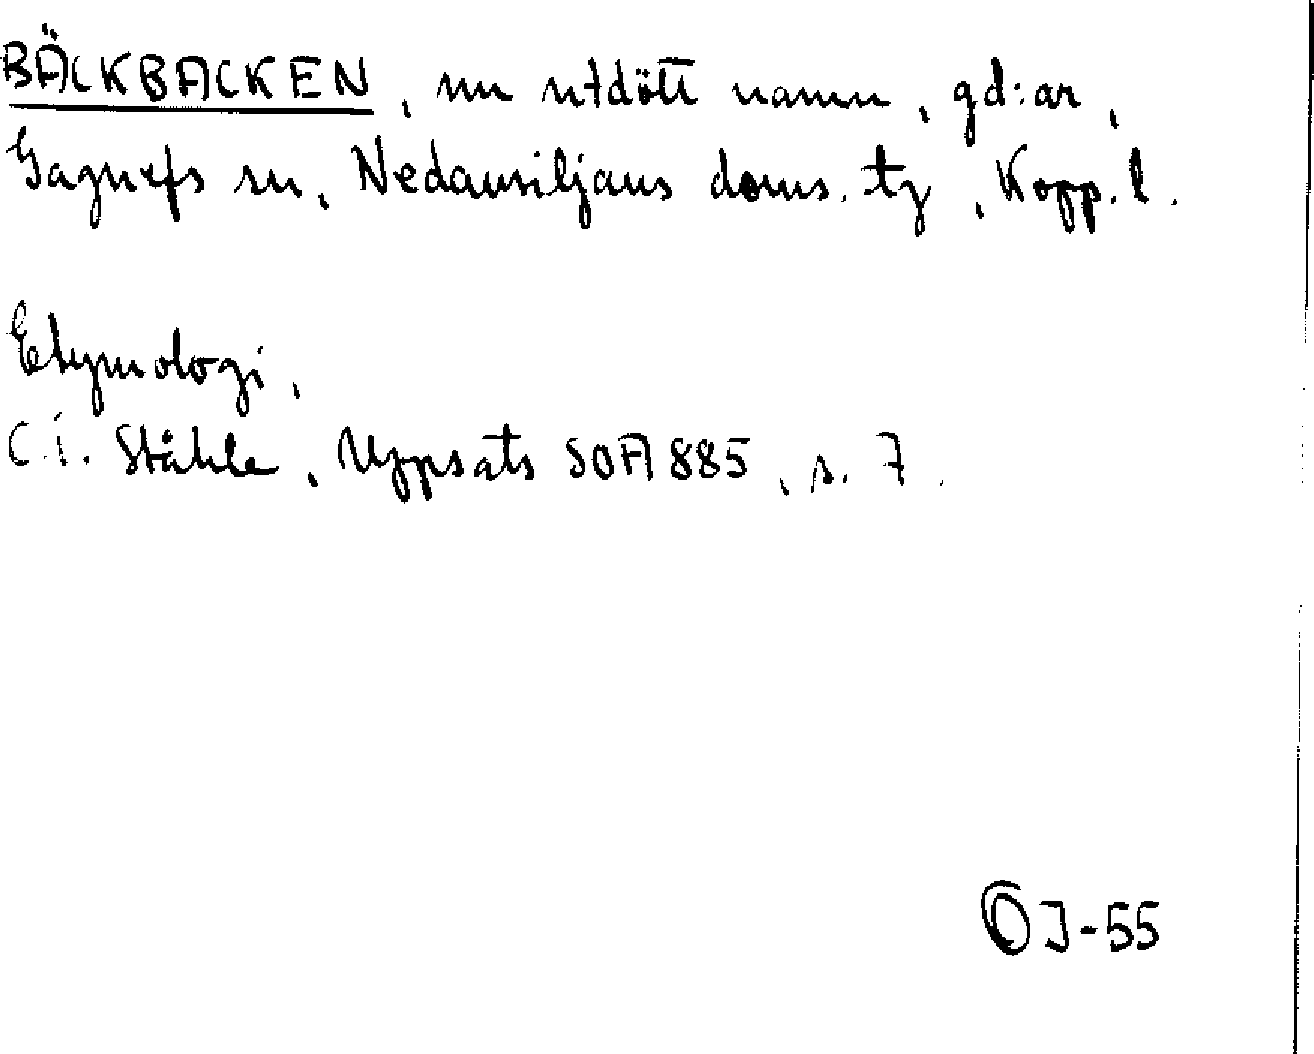 BÄCKBACKEN, nu utdött namn, gd:ar,
Gagnefs sn, Nedansiljans doms. tg, Kopp. l.
Etymologi,
C.I. Ståhle, Uppsats SOFA 885, s. 7.
OJ-55